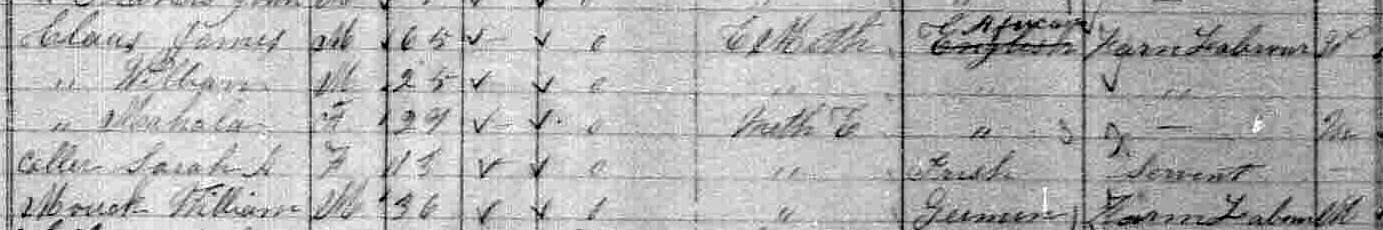 Claus James M 65 E Meth African English Farm Labourer W
" William M 25 " " "
" Mahala F 29 Meth E " — M
Sarah A F 15 " Irish Servant
Mouck William M 36 " German Farm Labour M